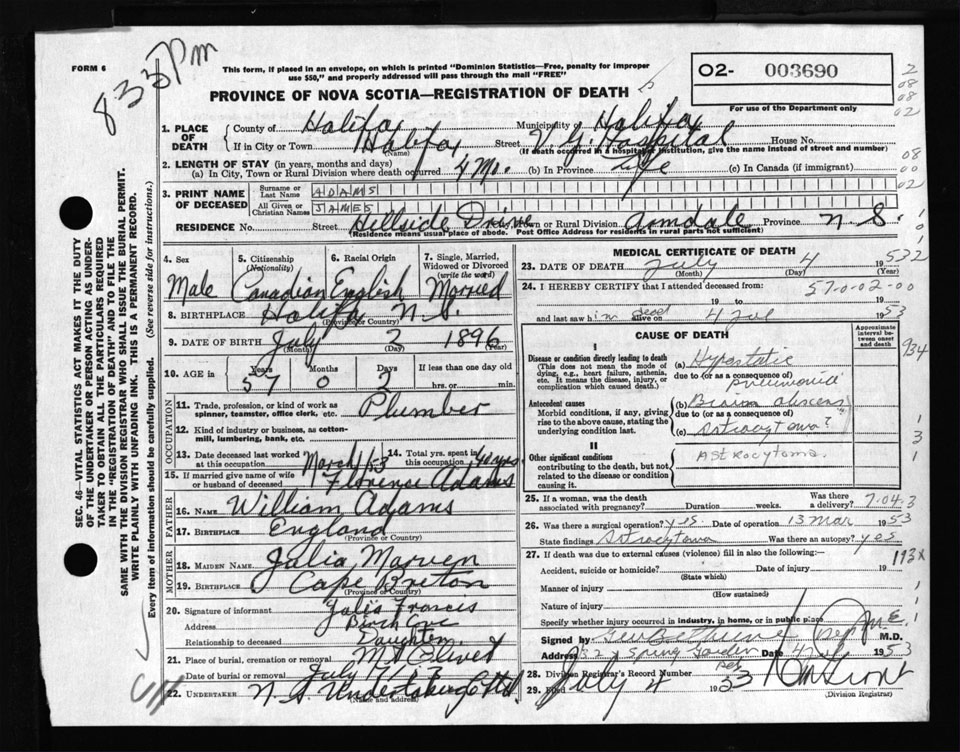 8.33 Pm
FORM 6
This form, if placed in an envelope, on which is printed "Dominion Statistics—Free, penalty for improper
use $50," and properly addressed will pass through the mail "FREE"
PROVINCE OF NOVA SCOTIA—REGISTRATION OF DEATH
02- 003690
For use of the Department only
2
08
08
02
08
00
02
1. PLACE OF DEATH
County of Halifax Municipality Halifax
If in City or Town Halifax (Name) Street V. G. Hospital House No.
(If death occurred in a hospital institution, give the name instead of street and number)
2. LENGTH OF STAY (in years, months and days)
(a) In City, Town or Rural Division where death occurred 4 Mo. (b) In Province Life (c) In Canada (if immigrant)
3. PRINT NAME OF DECEASED
Surname or Last Name ADAMS
All Given or Christian Names JAMES
RESIDENCE No. Street Hillside Drive City, Town or Rural Division Armdale Province N.S.
(Residence means usual place of abode. Post Office Address for residents in rural parts not sufficient)
SEC. 46—VITAL STATISTICS ACT MAKES IT THE DUTY
OF THE UNDERTAKER OR PERSON ACTING AS UNDER-
TAKER TO OBTAIN ALL THE PARTICULARS REQUIRED
IN THE "REGISTRATION OF DEATH" AND TO FILE THE
SAME WITH THE DIVISION REGISTRAR WHO SHALL ISSUE THE BURIAL PERMIT.
WRITE PLAINLY WITH UNFADING INK. THIS IS A PERMANENT RECORD.
Every item of information should be carefully supplied. (See reverse side for instructions.)
4. Sex
Male
5. Citizenship
(Nationality)
Canadian
6. Racial Origin
English
7. Single, Married,
Widowed or Divorced
(write the word)
Married
8. BIRTHPLACE Halifax N.S.
(Province or Country)
9. DATE OF BIRTH July 2 1896
(Month) (Day) (Year)
10. AGE in Years 57 Months 0 Days 2 If less than one day old
hrs. or min.
OCCUPATION
11. Trade, profession, or kind of work as
spinner, teamster, office clerk, etc. Plumber
12. Kind of industry or business, as cotton-
mill, lumbering, bank, etc.
13. Date deceased last worked
at this occupation March/53
14. Total yrs. spent in
this occupation 40 yrs.
15. If married give name of wife
or husband of deceased Florence Adams
FATHER
16. NAME William Adams
17. BIRTHPLACE England
(Province or Country)
MOTHER
18. MAIDEN NAME Julia Marven
19. BIRTHPLACE Cape Breton
(Province or Country)
20. Signature of informant Julia Francis
Address Birch Cove
Relationship to deceased Daughter
21. Place of burial, cremation or removal Mt Olivet
Date of burial or removal July
22. UNDERTAKER N.S. Undertaking Co Ltd.
(Name and address)
MEDICAL CERTIFICATE OF DEATH
23. DATE OF DEATH July 4 1953
(Month) (Day) (Year)
24. I HEREBY CERTIFY that I attended deceased from:
57-0-02-00
19 to 19
and last saw him dead alive on 4 Jul 1953
CAUSE OF DEATH
Approximate
interval between
onset and death
I
Disease or condition directly leading to death
(This does not mean the mode of
dying, e.g., heart failure, asthenia,
etc. It means the disease, injury, or
complication which caused death.)
(a) Hypostatic
due to (or as a consequence of)
pneumonia
934
Antecedent causes
Morbid conditions, if any, giving
rise to the above cause, stating the
underlying condition last.
(b) Brain abscess
due to (or as a consequence of)
(c) Astrocytoma?
II
Other significant conditions
contributing to the death, but not
related to the disease or condition
causing it.
Astrocytoma
25. If a woman, was the death
associated with pregnancy? Duration weeks. Was there
a delivery?
7-04-3
26. Was there a surgical operation? yes. Date of operation 13 Mar 1953
State findings Astrocytoma Was there an autopsy? yes
27. If death was due to external causes (violence) fill in also the following:—
Accident, suicide or homicide? Date of injury 19
(State which)
193X
Manner of injury
(How sustained)
Nature of injury
Specify whether injury occurred in industry, in home, or in public place
Signed by M.D.
Address 32 Spring Garden Date 4 Jul 1953
28. Division Registrar's Record Number
29. Filed July 4 1953
(Division Registrar)